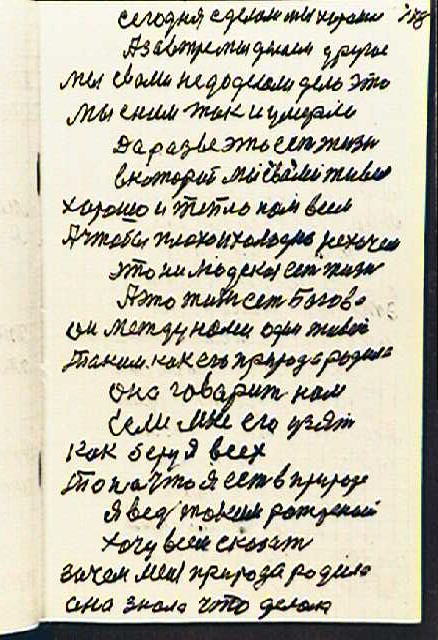 сегодня сделали мы хорошо 178
А завтра мы делаем другое
мы своми недоделоли дель это
мы сним так и умерли
Да разве это сет жизн
вкоторой мы свами живем
хорошо и тепло нам всем
А чтобы плохо и холодно нехочем
это ни людская сет жизн
А это жити сет Богова
он между нами один живой
таким как его природа родила
она говарит нам
если мне его узят
как беру я всех
То пачто я сет в природе
я вед таким рожденый
хочу всем сказат
зачем меня природа родила
она знала что делала